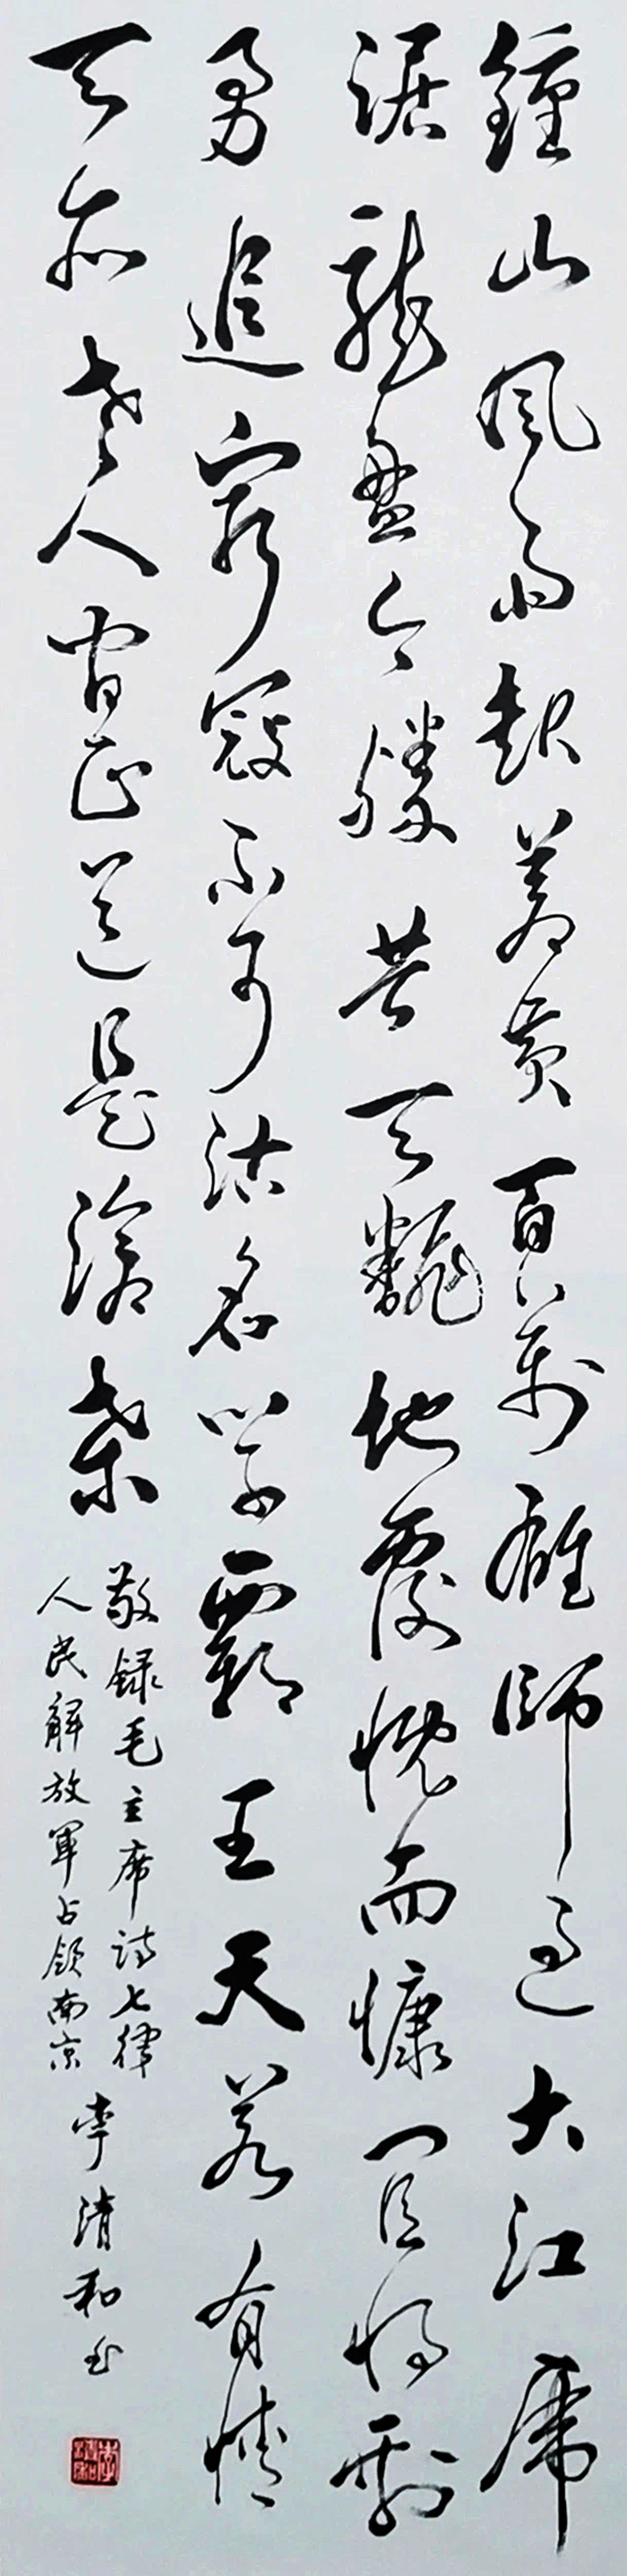 鍾山風雨起蒼黃百萬雄師過大江虎
踞龍盤今勝昔天飜地覆慨而慷宜將剩
勇追窮寇不可沽名學霸王天若有情
天亦老人間正道是滄桑
敬録毛主席詩七律
人民解放軍占領南京
李清和書